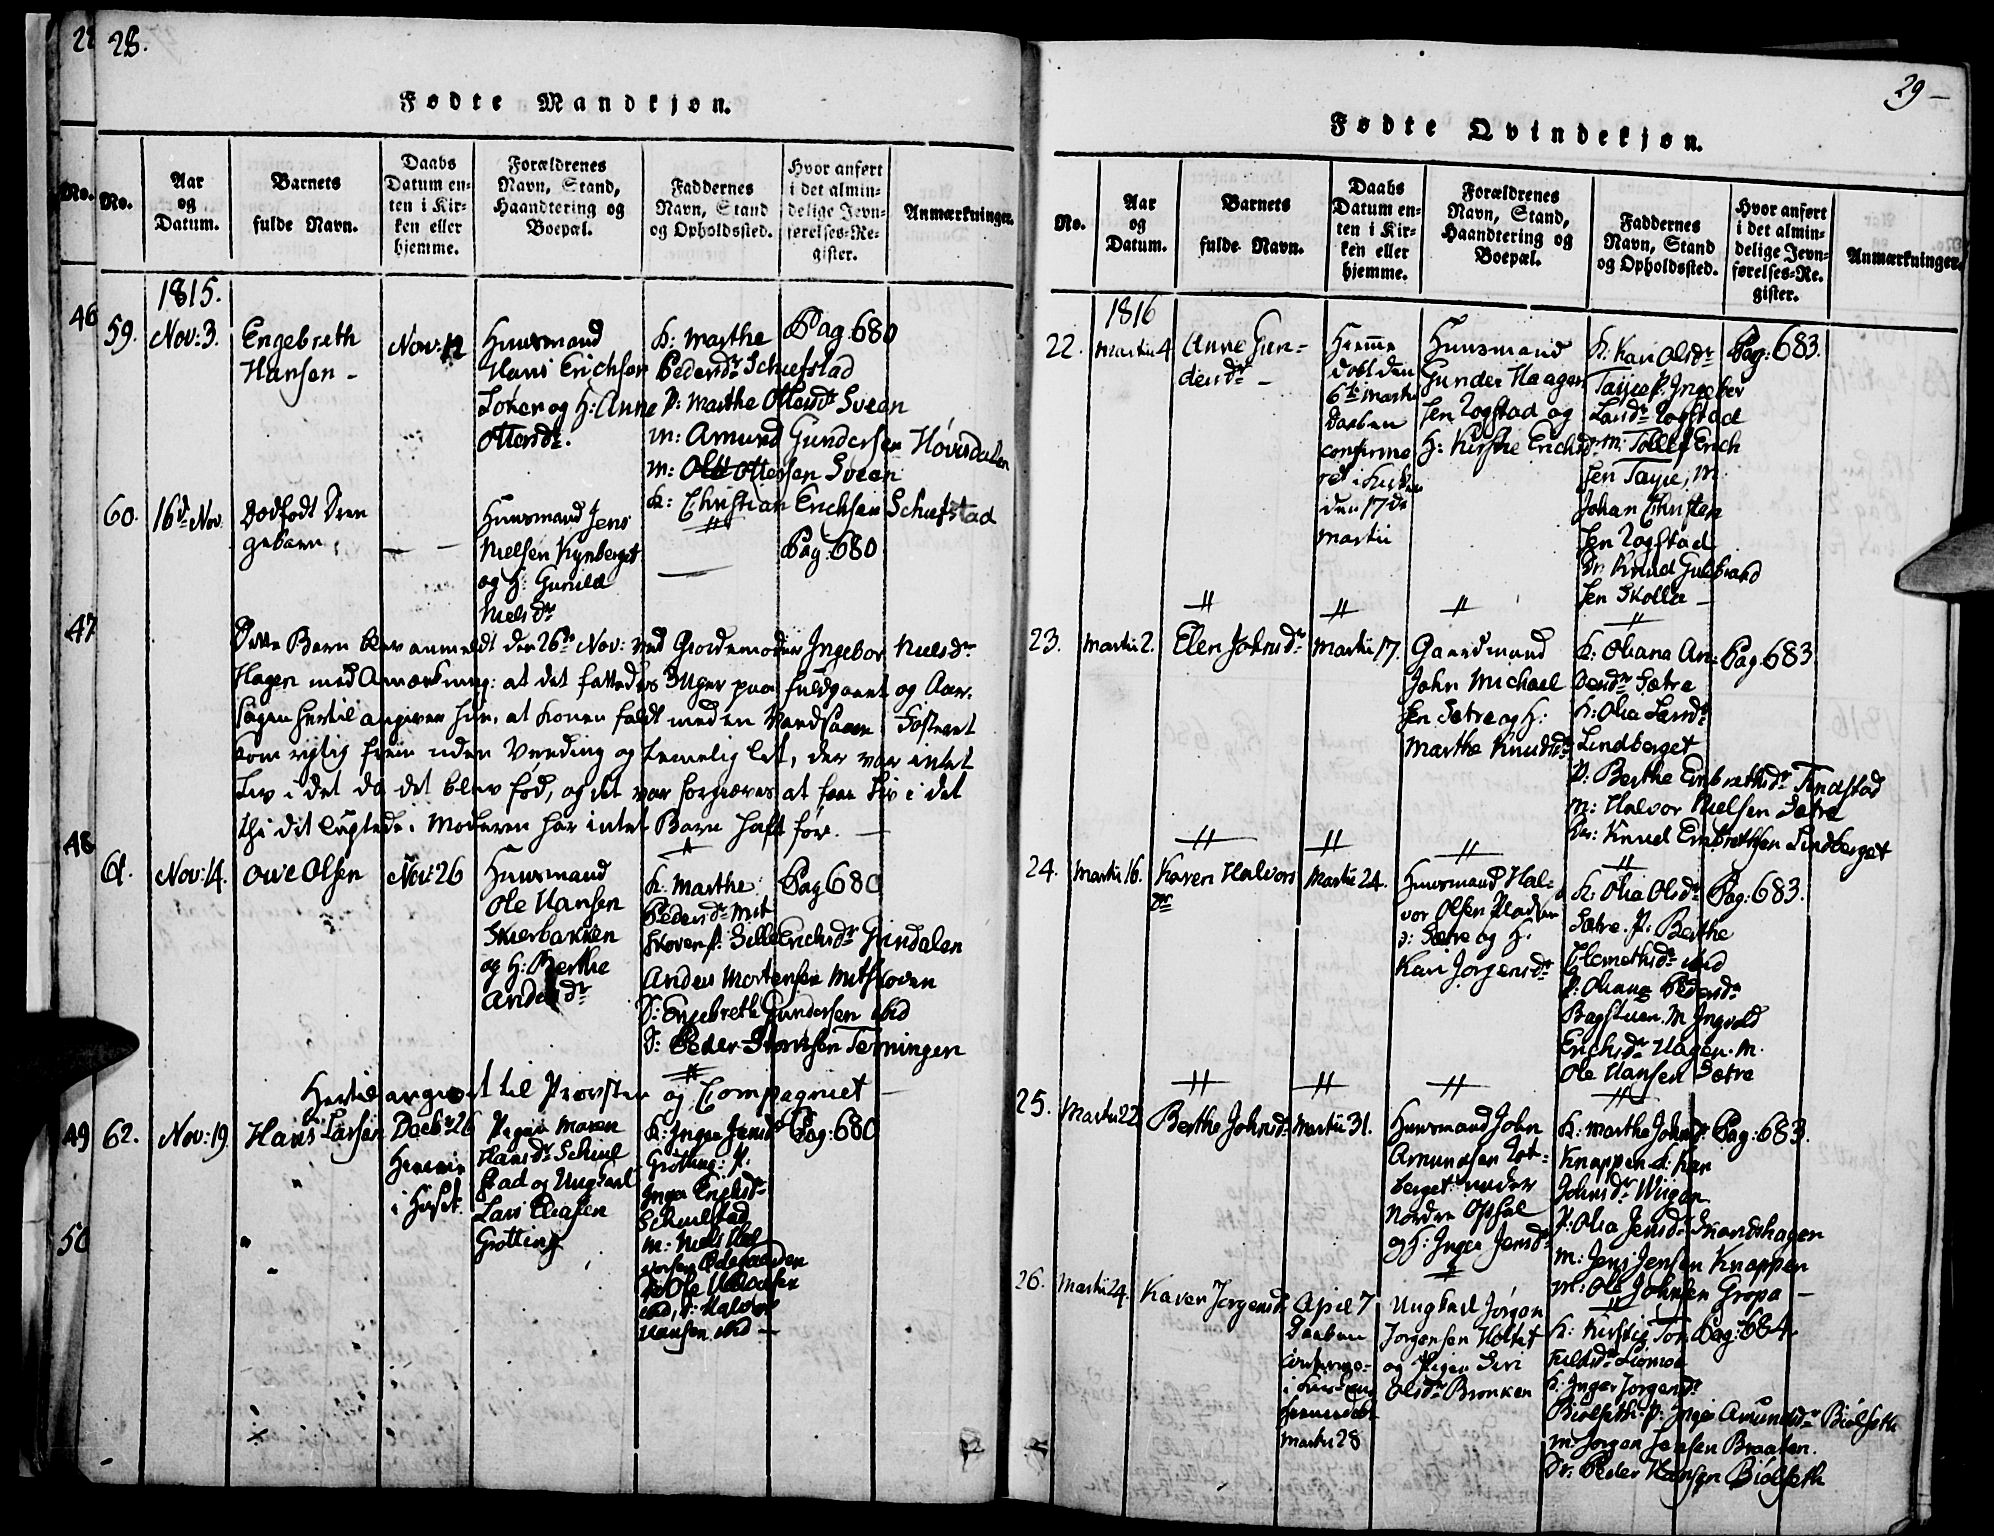 28.
Fødte Mandkjøn.
No.
Aar og Datum.
Barnets fulde Navn.
Daabs Datum enten i Kirken eller hjemme.
Forældrenes Navn, Stand, Haandtering og Boepæl.
Faddernes Navn, Stand og Opholdssted.
Hvor anført i det almindelige Jevnførelses-Register.
Anmærkninger.
1815.
59.
Nov: 3.
Engebreth
Hansen –
Nov: 12
Huusmand
Hans Erichsen
Løken og H: Anne
Ottersdr.
K: Marthe
Pedersdr Schiefstad
P: Marthe Ottersdr Sveen
M: Amund Gundersen Hovisdalen
M: Ottersen Sveen
K: Christian Erichsen Schiefstad
Pag 680
60.
16de Nov
Dødfødt Dren
gebarn,
Huusmand Jens
Nielsen Kynberget
og H: Gunild
Nielsdr
Pag: 680
Dette Barn blev anmeldt den 26de Nov: ved Giordemoder Ingebor Nielsdr
Hagen med Anmærkning: at det fattedes 3 Uger paa fuldgaaet og Aar-
sagen hertil angiver hun, at Konen faldt med en Vandsaae. Fosteret
kom rigtig frem uden Vending og temelig let, der var intet
Liv i det da det blev fød, og det var forgieves at faae Liv i det
thi dit Moderen har intet Barn haft før. –
61.
Nov: 14.
Ove Olsen
Nov: 26
Huusmand
Ole Hansen
Skierbakken
og H: Berthe
Andersdr
K: Marthe
Pedersdr Mit
skoven P: Sille Erichsdr Grindalen
Anders Mortensen Mitskoven
D: Engebreth Gundersen ibid
D: Peder Terningen
Pag 680
Hertil angivet til Provsten og Compagniet –
62.
Nov: 19.
Hans Larsen
Decbr 26
Hjemme
i Huset
Pigen Maren
Hansdr Schiul
stad og Ungkarl
Lars Eliasen
Grøtting
K: Inger Jensdr
Grøtting: P:
Inger Erichsdr
Schiulstad
M: Niels Hal
vorsen Ødegaarden
D: Ole Halvorsen
ibid, D: Halvor
Hansen ibid –
Pag: 680
46
47
48
49
50
29 –
Fødte Qvindekjøn.
No.
Aar og Datum.
Barnets fulde Navn.
Daabs Datum enten i Kirken eller hjemme.
Forældrenes Navn, Stand, Haandtering og Boepæl.
Faddernes Navn, Stand og Opholdssted.
Hvor anført i det almindelige Jevnførelses-Register.
Anmærkninger.
1816
22.
Martii 4
Anne Gun-
dersdr –
Hjemme
døbt den
6te Martii
Daaben
confirme
ret i Kirken
den 17de
Martii
Huusmand
Gunder Haagen
sen Rogstad og
H: Kirstie Erichsdr
K: Kari Olsdr
Taije P: Ingebor
Larsdr Rogstad
M: Tollef Erich
sen Taije, M:
Johan Christen
sen Rogstad
Dr: Knud Gulbrand
sen Skolla –
Pag: 683.
23.
Martii 2.
Elen Johnsdr
Martii 17.
Gaardmand
John Michael
sen Sætre og H:
Marthe Knudsdr
K: Oliana An-
dersdr Sætre
K: Olia Larsdr
Lindberget
P: Berthe Embrethsdr Finstad
M: Halvor Nielsen Sætre
Dr: Knud Embrethsen Lindberget
Pag 683
24.
Martii 16.
Karen Halvors
dr
Martii 24.
Huusmand Hal-
vor Olsen Pladsen
v: Sætre og H:
Kari Jorgensdr
K: Olia Olsdr
Sætre. P: Berthe
Clemethsdr ibid
P: Oliana Pedersdr
Bagstuen. M Ingvold
Erichsdr Hagen. M.
Ole Hansen Sætre
Pag: 683.
25.
Martii 22
Berthe Johnsdr
Martii 31.
Huusmand John
Amundsen Rot-
berget under
Nordre Opsal
og H: Inger Jensdr
K: Marthe Johnsdr
Knappen K: Kari
Johnsdr Wiigen
P: Olia Jensdr Strandshagen
M: Jens Jensen Knappen
M: Ole Johnsen Gropa –
Pag: 683.
26.
Martii 24.
Karen Jorgensdr
April 7
Daaben
confirme-
i Kirken
Hjemmedøbt
Martii 28
Ungkarl Jørgen
Jorgensen Holtet
og Pigen Siri
Olsdr Bronken
K: Kirstie Tor
K: Inger Jorgensdr
Biølseth: P: Inger Amundsdr Biølseth
M: Jorgen Jensen Braaten.
Dr: Peder Hansen Biølseth
Pag: 684